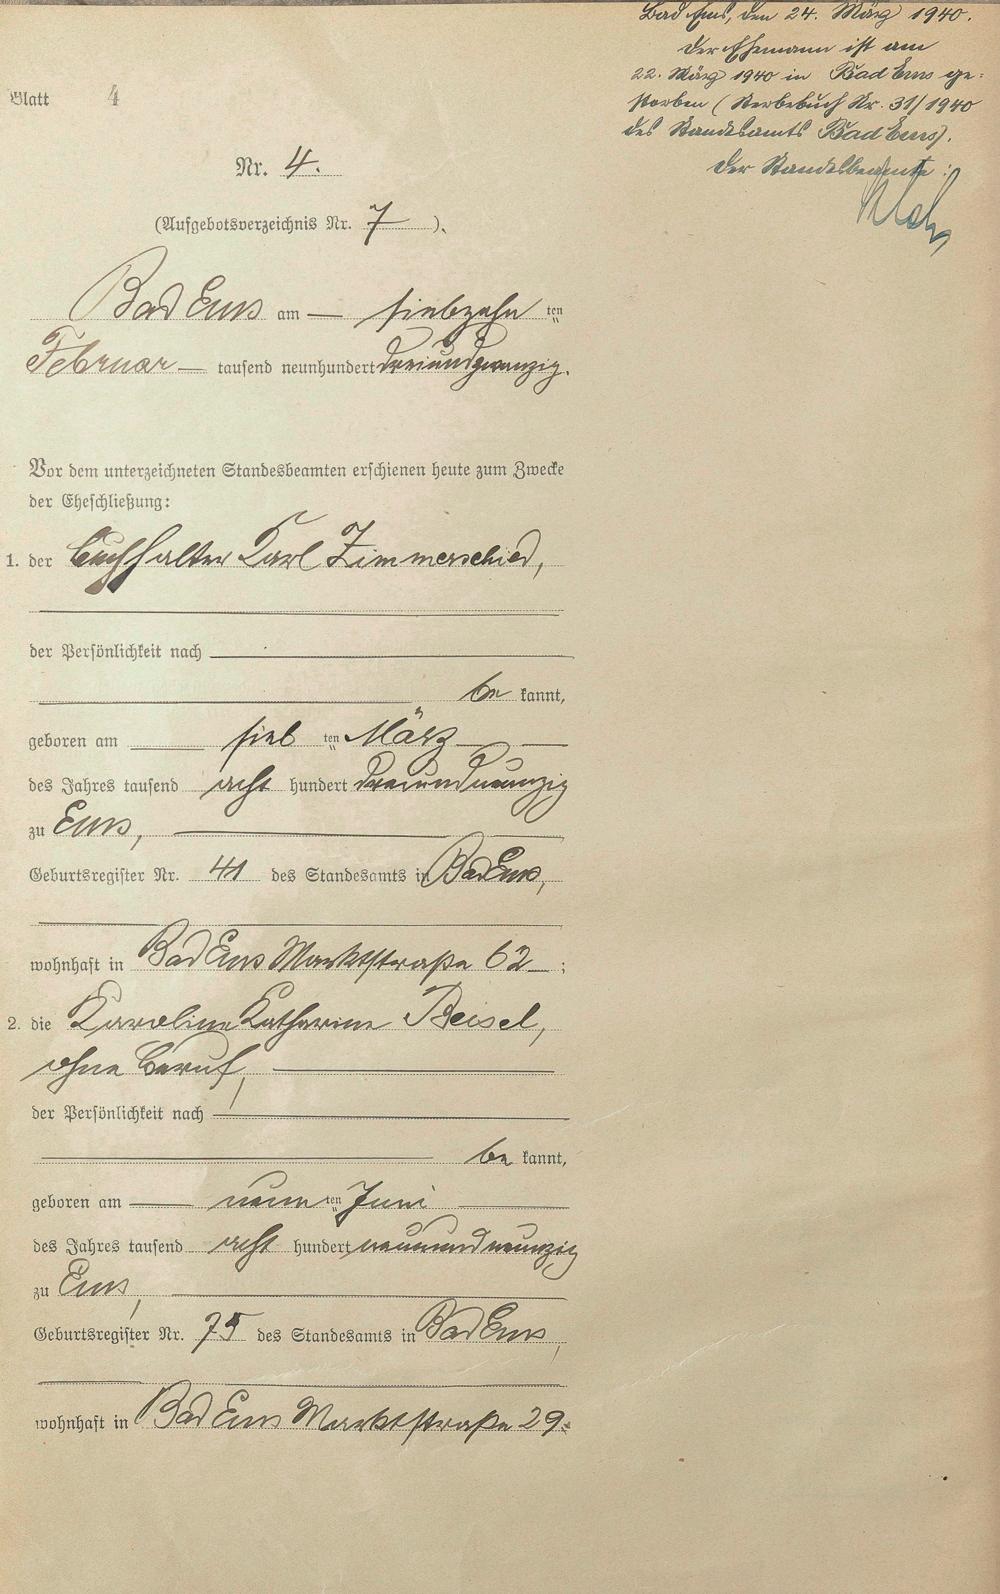 Bad Ems, den 24. März 1940.
Der Ehemann ist am
22. März 1940 in Bad Ems ge-
storben (Sterbebuch Nr. 31/1940
des Standesamts Bad Ems).
Der Standesbeamte:
Blatt 4
Nr. 4.
(Aufgebotsverzeichnis Nr. 7 ).
Bad Ems am — siebzehn ten
Februar — tausend neunhundert dreiundzwanzig.
Vor dem unterzeichneten Standesbeamten erschienen heute zum Zwecke
der Eheschließung:
1. der Buchhalter Karl Zimmerschied,
der Persönlichkeit nach
be kannt,
geboren am sieb ten März
des Jahres tausend acht hundert dreiundneunzig
zu Ems,
Geburtsregister Nr. 41 des Standesamts in Bad Ems,
wohnhaft in Bad Ems Marktstraße 62 ;
2. die Karoline Katharine Beisel,
ohne Beruf,
der Persönlichkeit nach
be kannt,
geboren am neun ten Juni
des Jahres tausend acht hundert neunundneunzig
zu Ems,
Geburtsregister Nr. 75 des Standesamts in Bad Ems,
wohnhaft in Bad Ems Marktstraße 29.